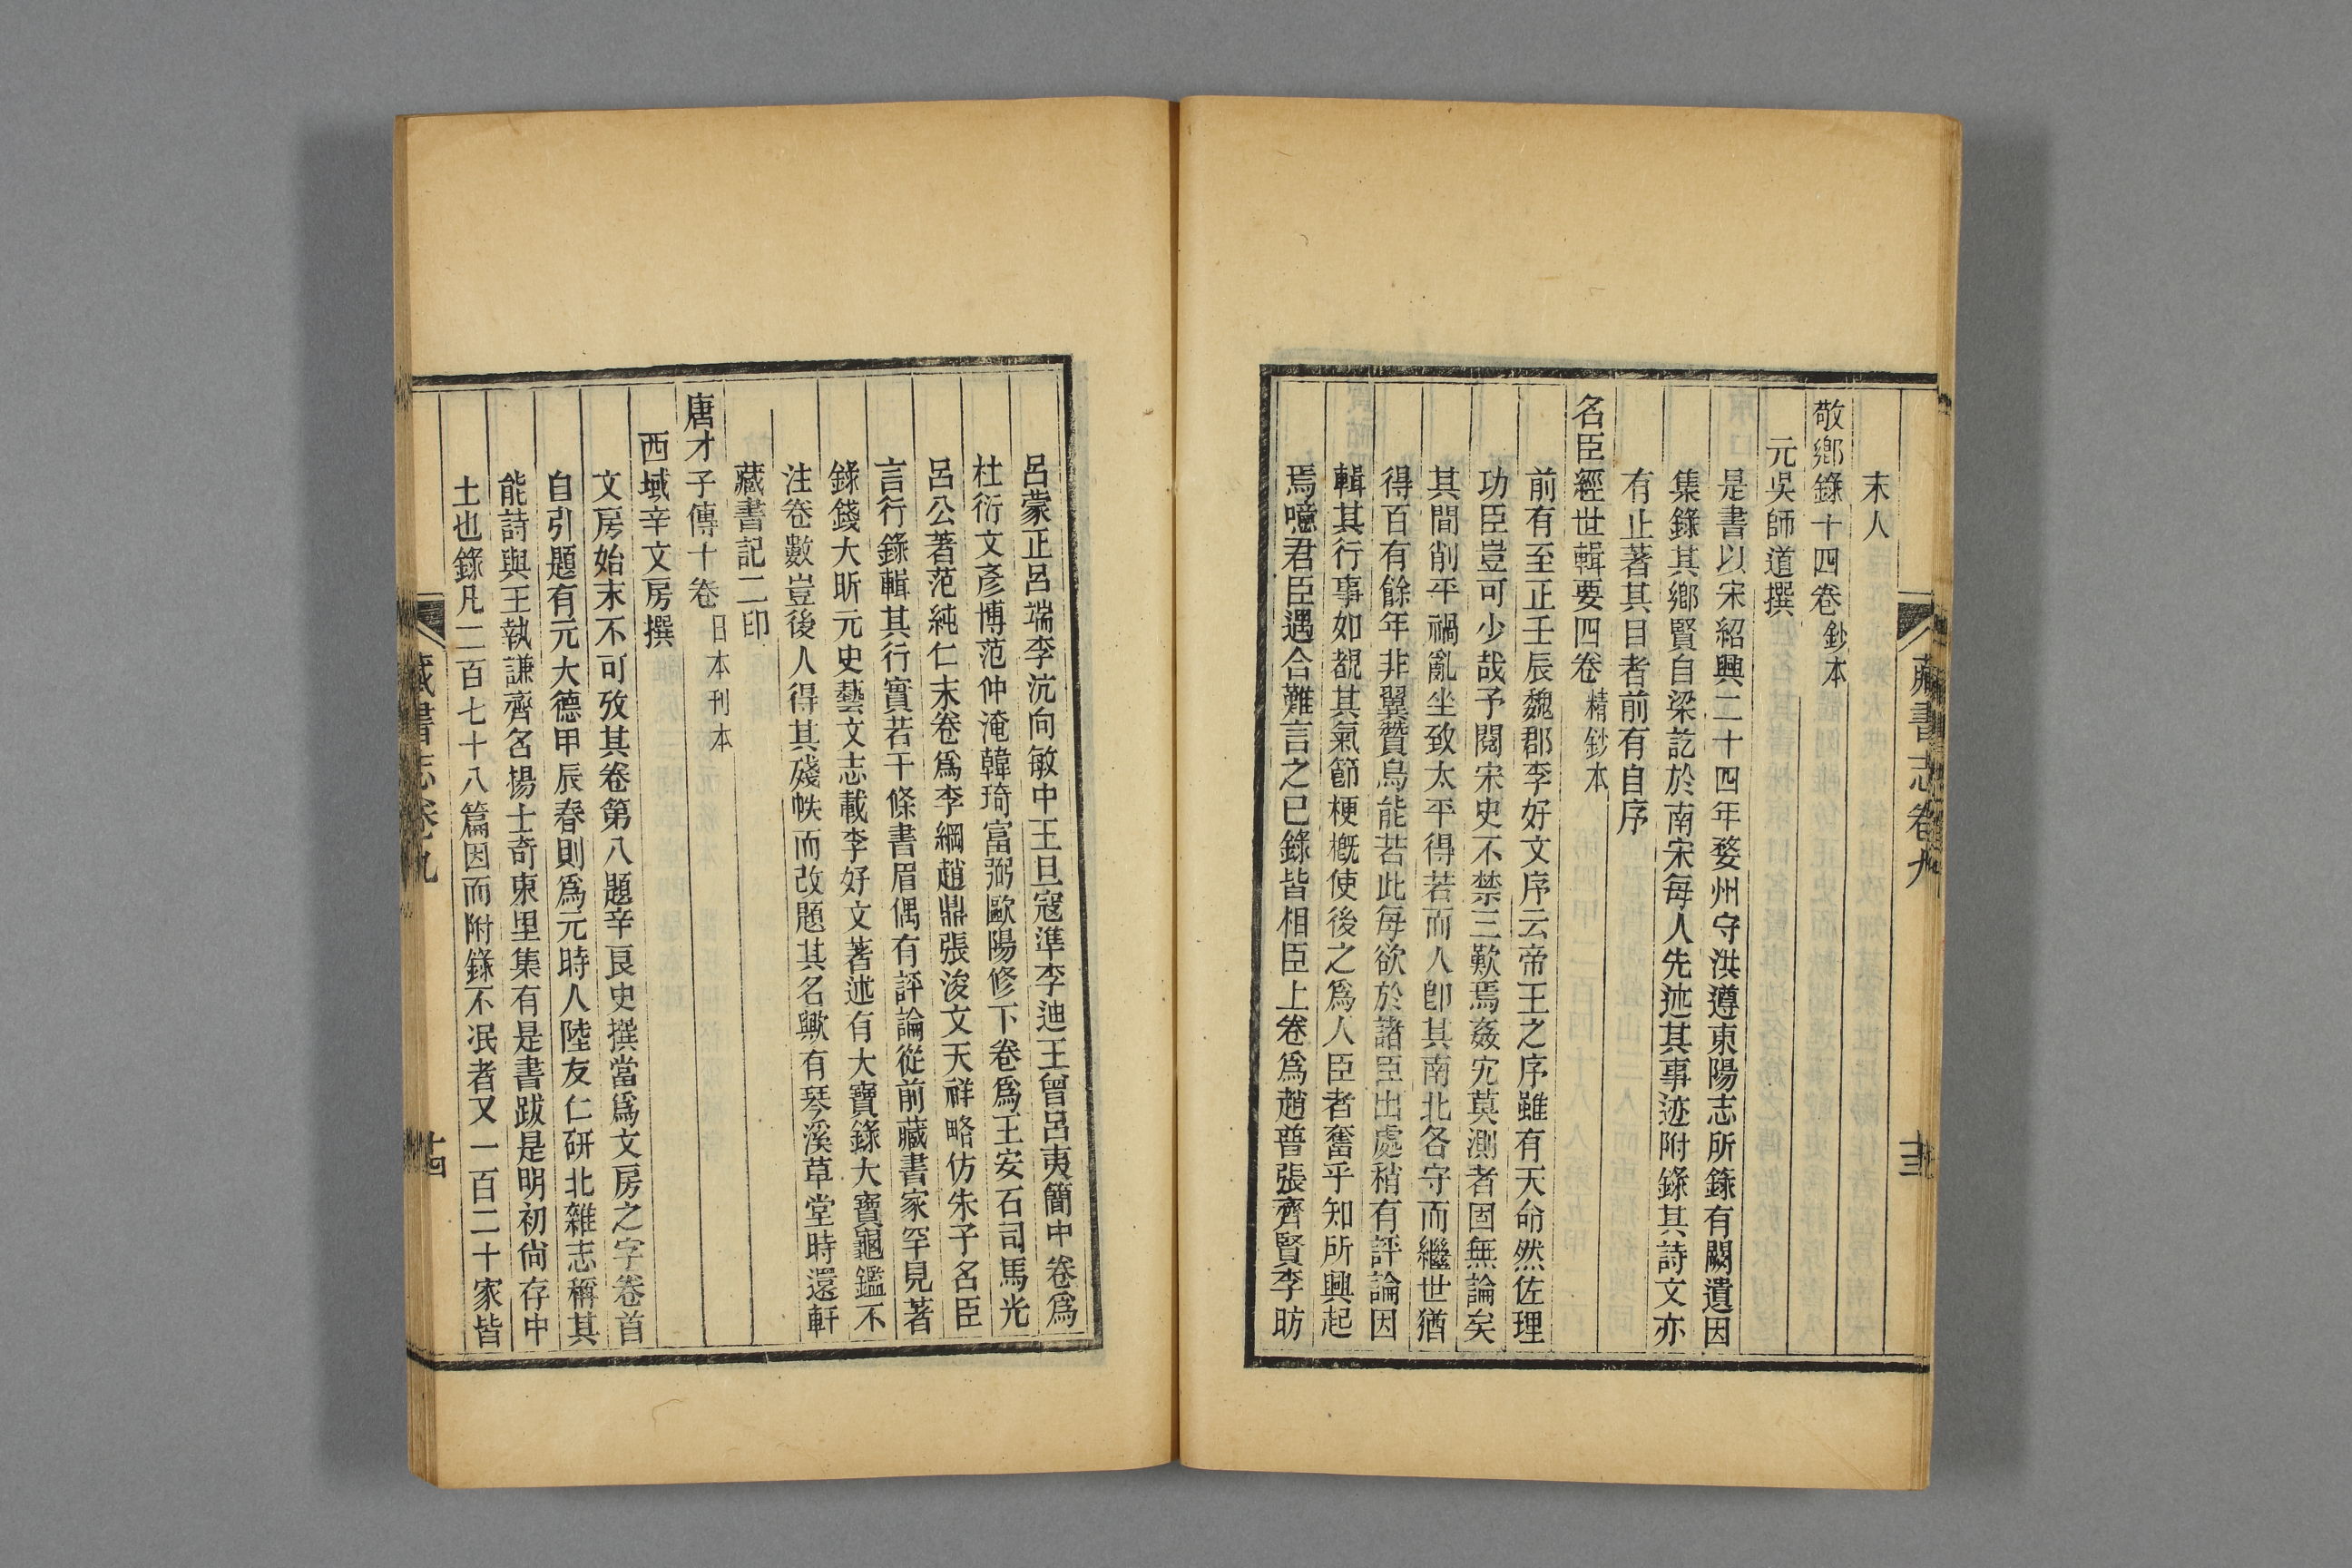 末人
敬鄉錄十四卷鈔本
元吳師道撰
是書以宋紹興二十四年婺州守洪遵東陽志所錄有闕遺因
集錄其鄉賢自梁訖於南宋每人先述其事迹附錄其詩文亦
有止著其目者前有自序
名臣經世輯要四卷精鈔本
前有至正壬辰魏郡李好文序云帝王之序雖有天命然佐理
功臣豈可少哉予閱宋史不禁三歎焉姦宄莫測者固無論矣
其間削平禍亂坐致太平得若而人卽其南北各守而繼世猶
得百有餘年非翼贊烏能若此每欲於諸臣出處稍有評論因
輯其行事如覩其氣節梗概使後之爲人臣者奮乎知所興起
焉噫君臣遇合難言之已錄皆相臣上卷爲趙普張齊賢李昉
藏書志卷九
呂蒙正呂端李沆向敏中王旦寇準李迪王曾呂夷簡中卷爲
杜衍文彥博范仲淹韓琦富弼歐陽修下卷爲王安石司馬光
呂公著范純仁末卷爲李綱趙鼎張浚文天祥略仿朱子名臣
言行錄輯其行實若干條書眉偶有評論從前藏書家罕見著
錄錢大昕元史藝文志載李好文著述有大寶錄大寶龜鑑不
注卷數豈後人得其殘帙而改題其名歟有琴溪草堂時還軒
藏書記二印
唐才子傳十卷日本刊本
西域辛文房撰
文房始末不可攷其卷第八題辛良史撰當爲文房之字卷首
自引題有元大德甲辰春則爲元時人陸友仁研北雜志稱其
能詩與王執謙齊名楊士奇東里集有是書跋是明初尙存中
土也錄凡二百七十八篇因而附錄不泯者又一百二十家皆
藏書志卷九